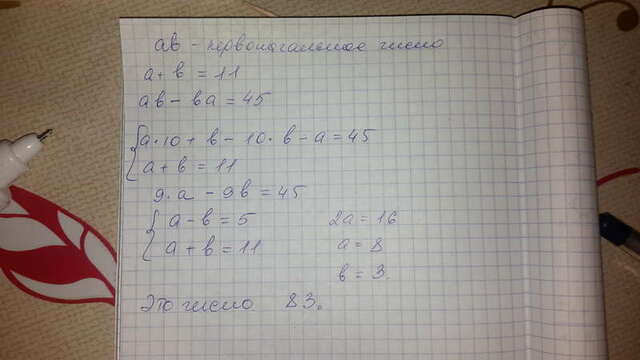 ав - первоначальное число
а + в = 11
ав - ва = 45
а·10 + в - 10·в - а = 45
а + в = 11
9·а - 9в = 45
а - в = 5
а + в = 11
2а = 16
а = 8
в = 3.
Это число 83.